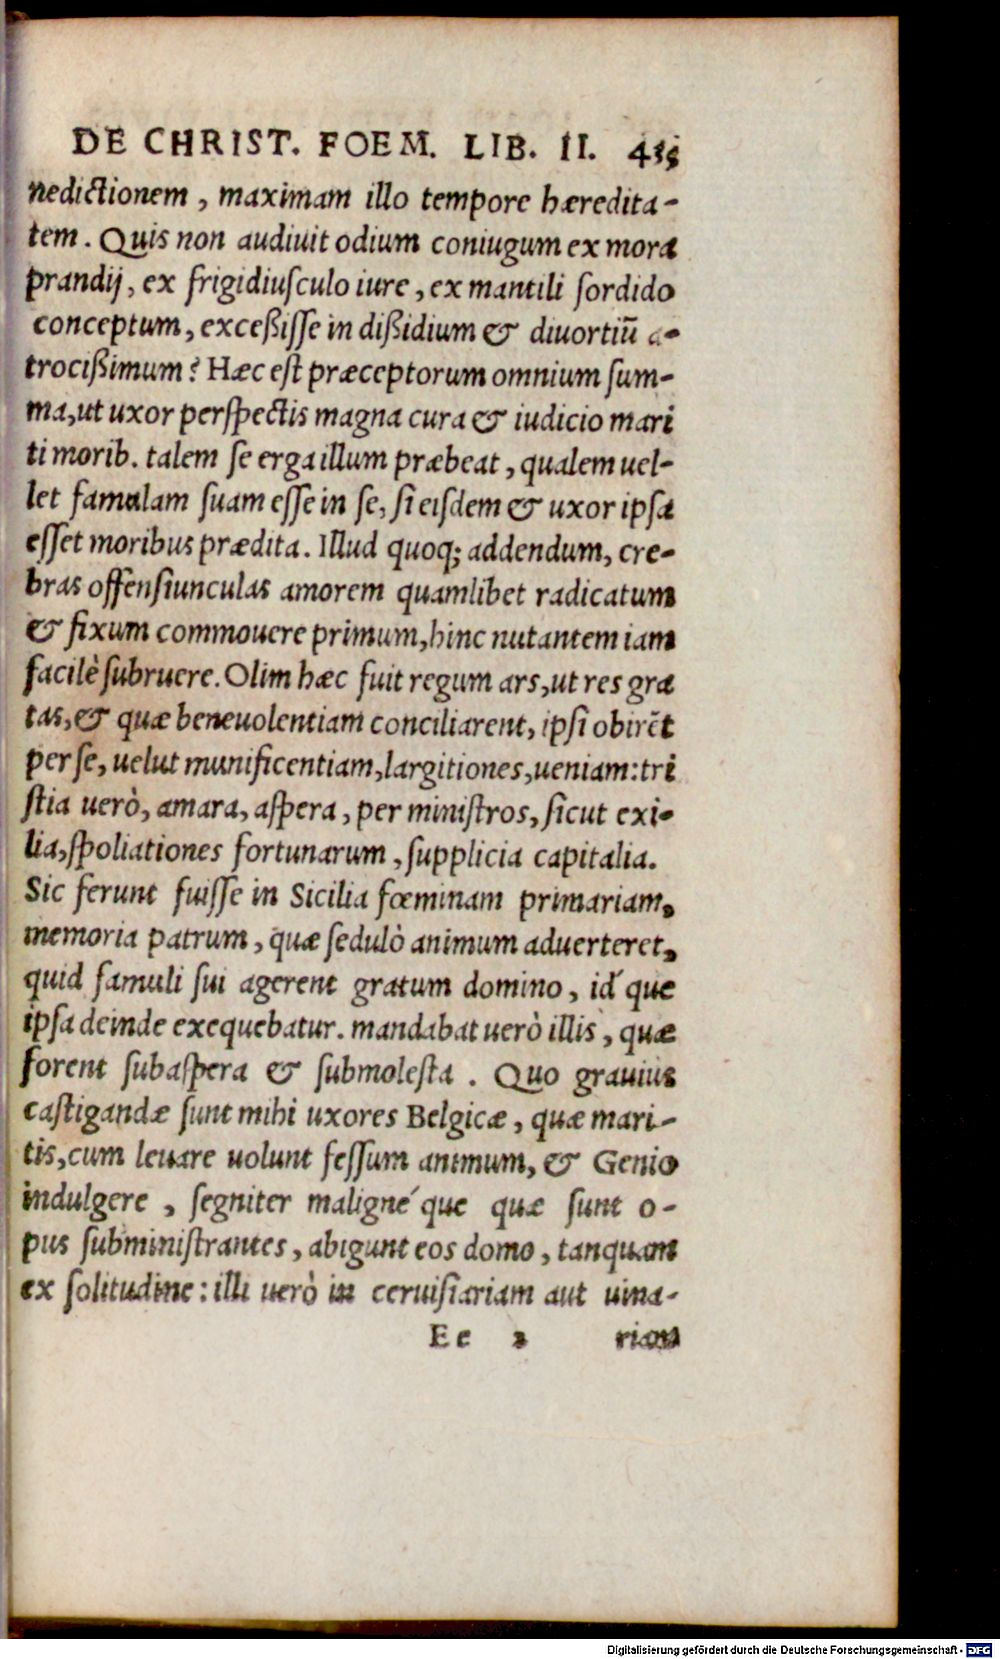 DE CHRIST. FOEM. LIB. II. 435
nedictionem, maximam illo tempore hæredita-
tem. Quis non audiuit odium coniugum ex mora
prandij, ex frigidiuſculo iure, ex mantili ſordido
conceptum, exceßiſſe in dißidium & diuortiū a-
trocißimum? Hæc eſt præceptorum omnium ſum-
ma, ut uxor perſpectis magna cura & iudicio mari
ti morib. talem ſe erga illum præbeat, qualem uel-
let famulam ſuam eſſe in ſe, ſi eiſdem & uxor ipſa
eſſet moribus prædita. Illud quoq; addendum, cre-
bras offenſiunculas amorem quamlibet radicatum
& fixum commouere primum, hinc nutantem iam
facilè ſubruere. Olim hæc fuit regum ars, ut res gra
tas, & quæ beneuolentiam conciliarent, ipſi obirēt
per ſe, uelut munificentiam, largitiones, ueniam: tri
ſtia uerò, amara, aſpera, per miniſtros, ſicut exi-
lia, ſpoliationes fortunarum, ſupplicia capitalia.
Sic ferunt fuiſſe in Sicilia fœminam primariam,
memoria patrum, quæ ſedulò animum aduerteret,
quid famuli ſui agerent gratum domino, id́ que
ipſa deinde exequebatur. mandabat uerò illis, quæ
forent ſubaſpera & ſubmoleſta. Quo grauius
caſtigandæ ſunt mihi uxores Belgicæ, quæ mari-
tis, cum leuare uolunt feſſum animum, & Genio
indulgere, ſegniter maligné que quæ ſunt o-
pus ſubminiſtrantes, abigunt eos domo, tanquam
ex ſolitudine: illi uerò in ceruiſiariam aut uina-
Ee 2 riam
Digitalisierung gefördert durch die Deutsche Forschungsgemeinschaft - DFG